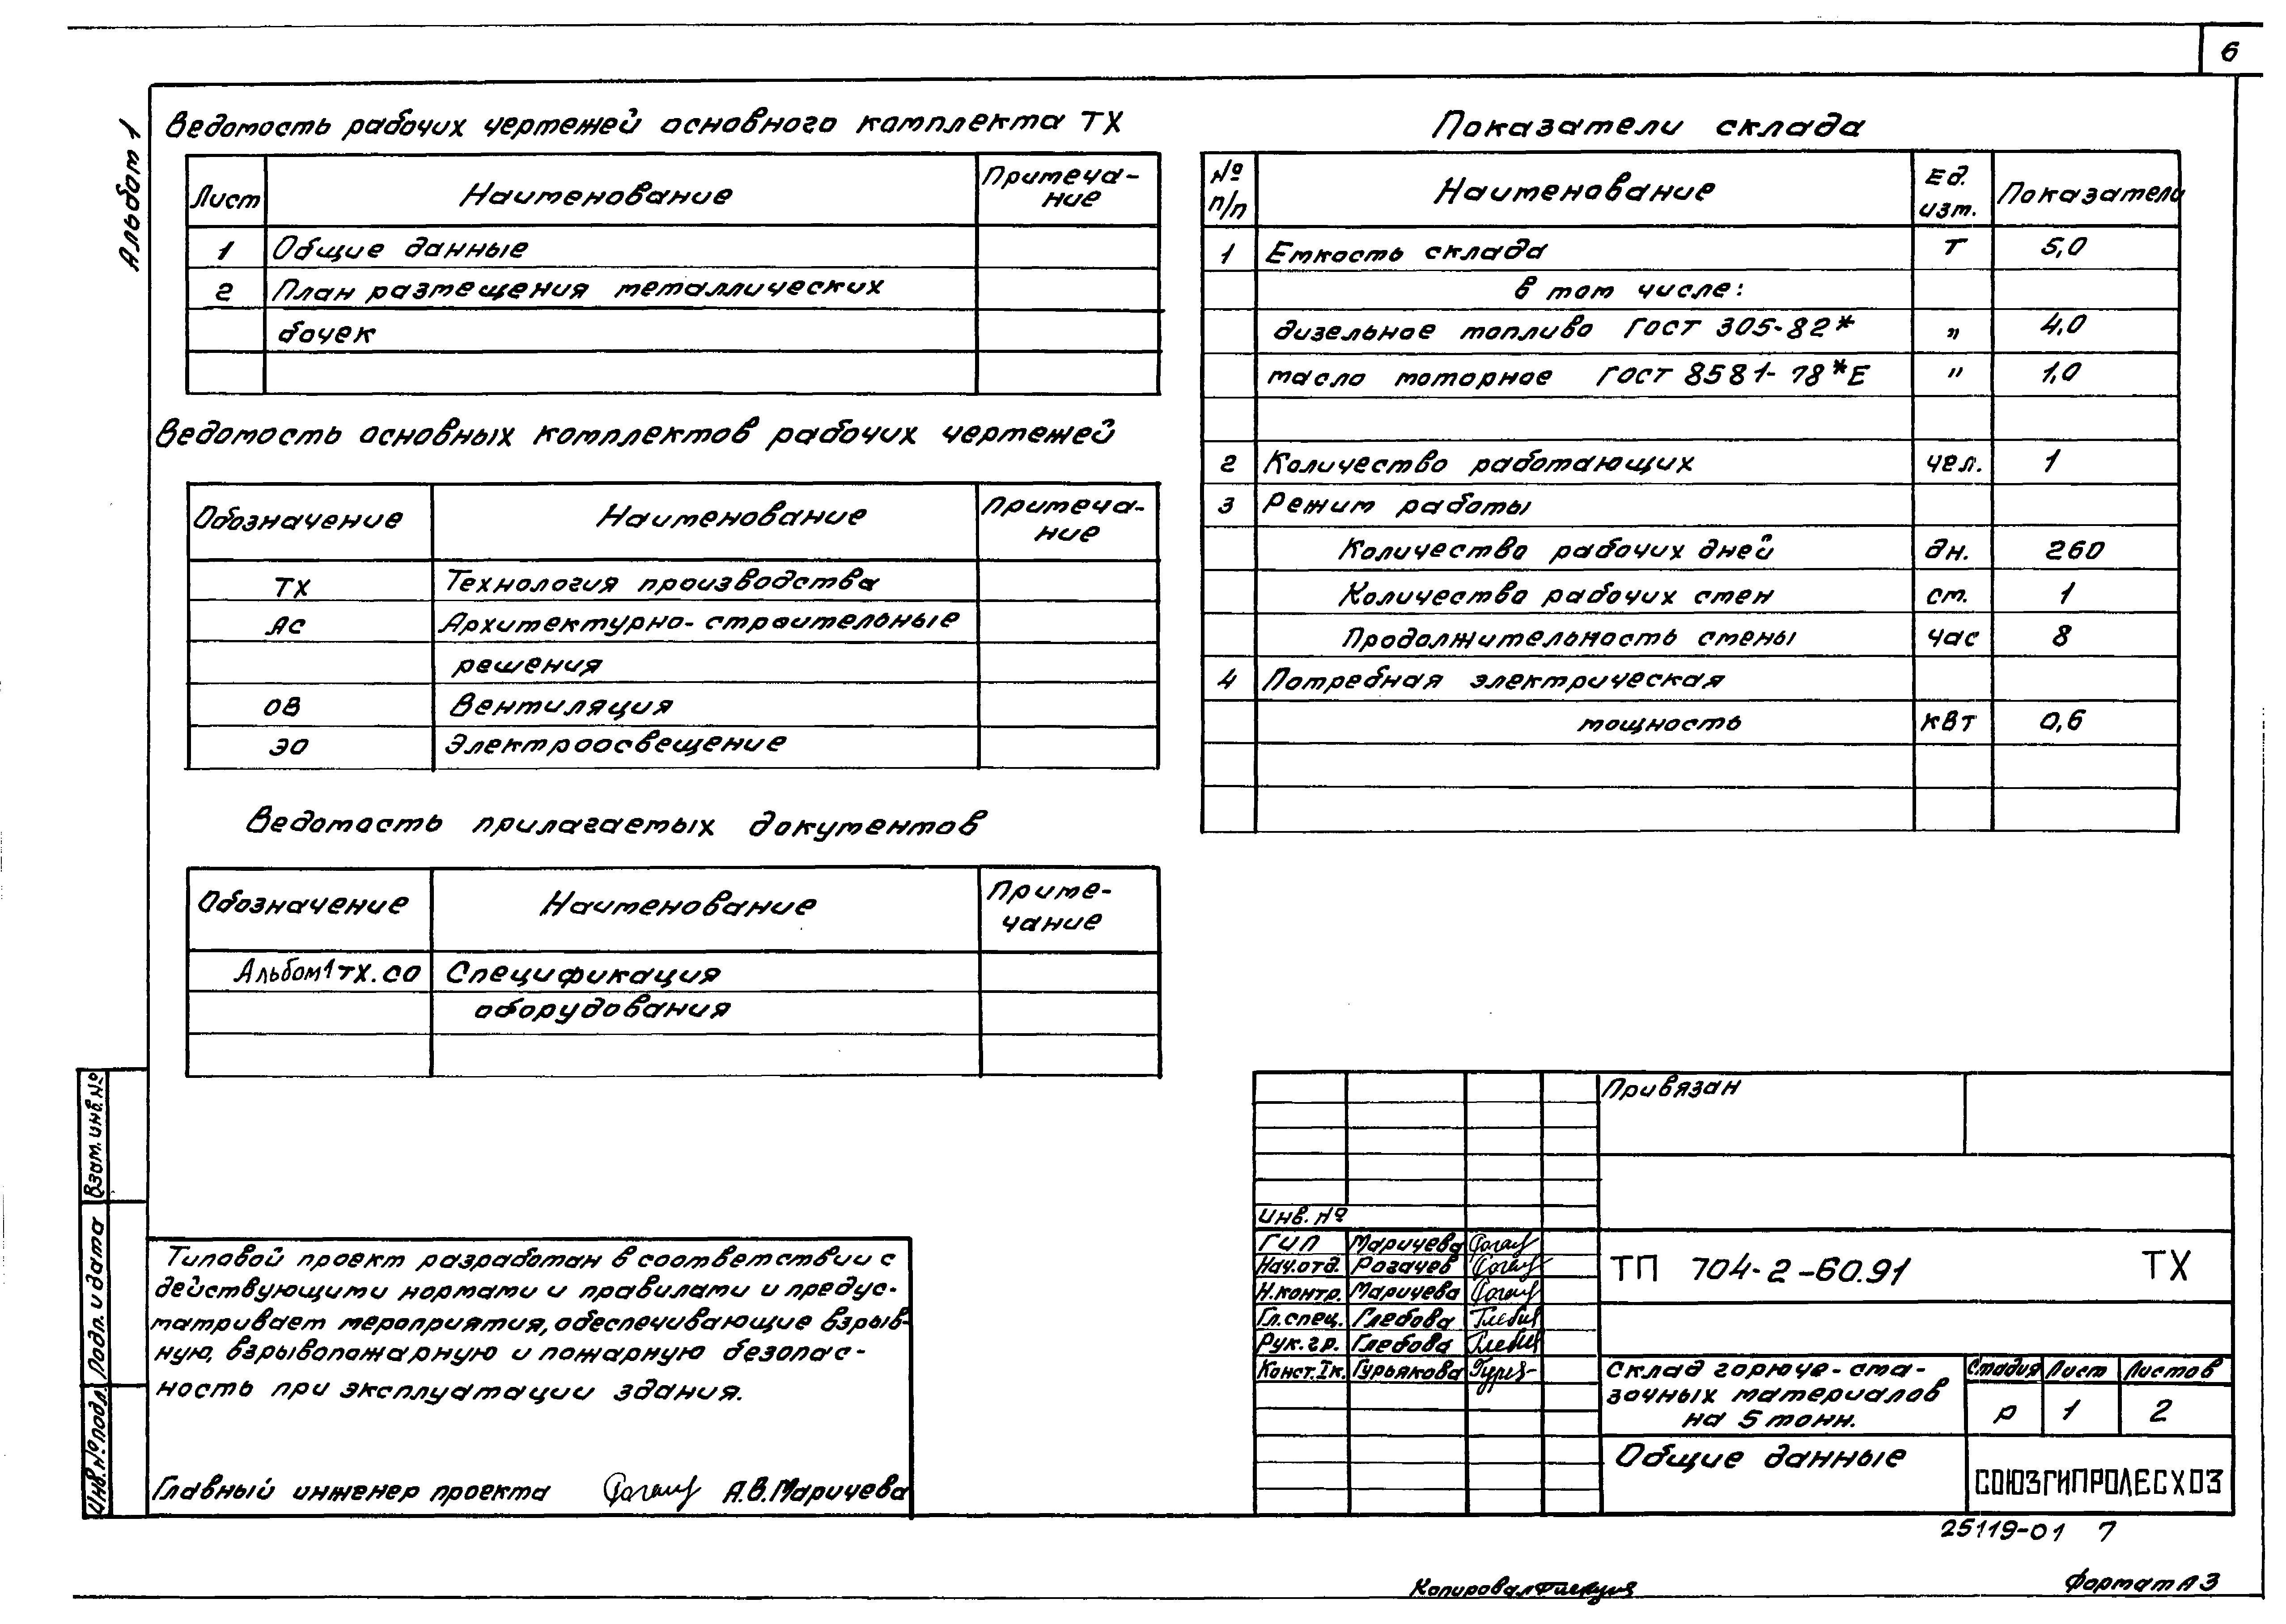 6
Альбом 1
Ведомость рабочих чертежей основного комплекта ТХ
Лист Наименование Примеча-
ние
1 Общие данные
2 План размещения металлических
бочек
Ведомость основных комплектов рабочих чертежей
Обозначение Наименование Примеча-
ние
ТХ Технология производства
АС Архитектурно-строительные
решения
ОВ Вентиляция
ЭО Электроосвещение
Ведомость прилагаемых документов
Обозначение Наименование Приме-
чание
Альбом1 ТХ.СО Спецификация
оборудования
Показатели склада
№ п/п Наименование Ед. изм. Показатели
1 Емкость склада т 5,0
в том числе:
дизельное топливо ГОСТ 305-82* „ 4,0
масло моторное ГОСТ 8581-78*Е " 1,0
2 Количество работающих чел. 1
3 Режим работы
Количество рабочих дней дн. 260
Количество рабочих смен см. 1
Продолжительность смены час 8
4 Потребная электрическая
мощность кВт 0,6
Взам. инв. №
Подп. и дата
Инв. № подл.
Типовой проект разработан в соответствии с
действующими нормами и правилами и предус-
матривает мероприятия, обеспечивающие взрыв-
ную, взрывопожарную и пожарную безопас-
ность при эксплуатации здания.
Главный инженер проекта А.В.Маричева
Привязан
Инв. №
ГИП Маричева
Нач.отд. Рогачев
Н.контр. Маричева
Гл.спец. Глебова
Рук.гр. Глебова
Конст.Iк. Гурьякова
ТП 704-2-60.91 ТХ
Склад горюче-сма-
зочных материалов
на 5 тонн.
Стадия Лист Листов
Р 1 2
Общие данные
СОЮЗГИПРОЛЕСХОЗ
25119-01 7
Копировал
Формат А3